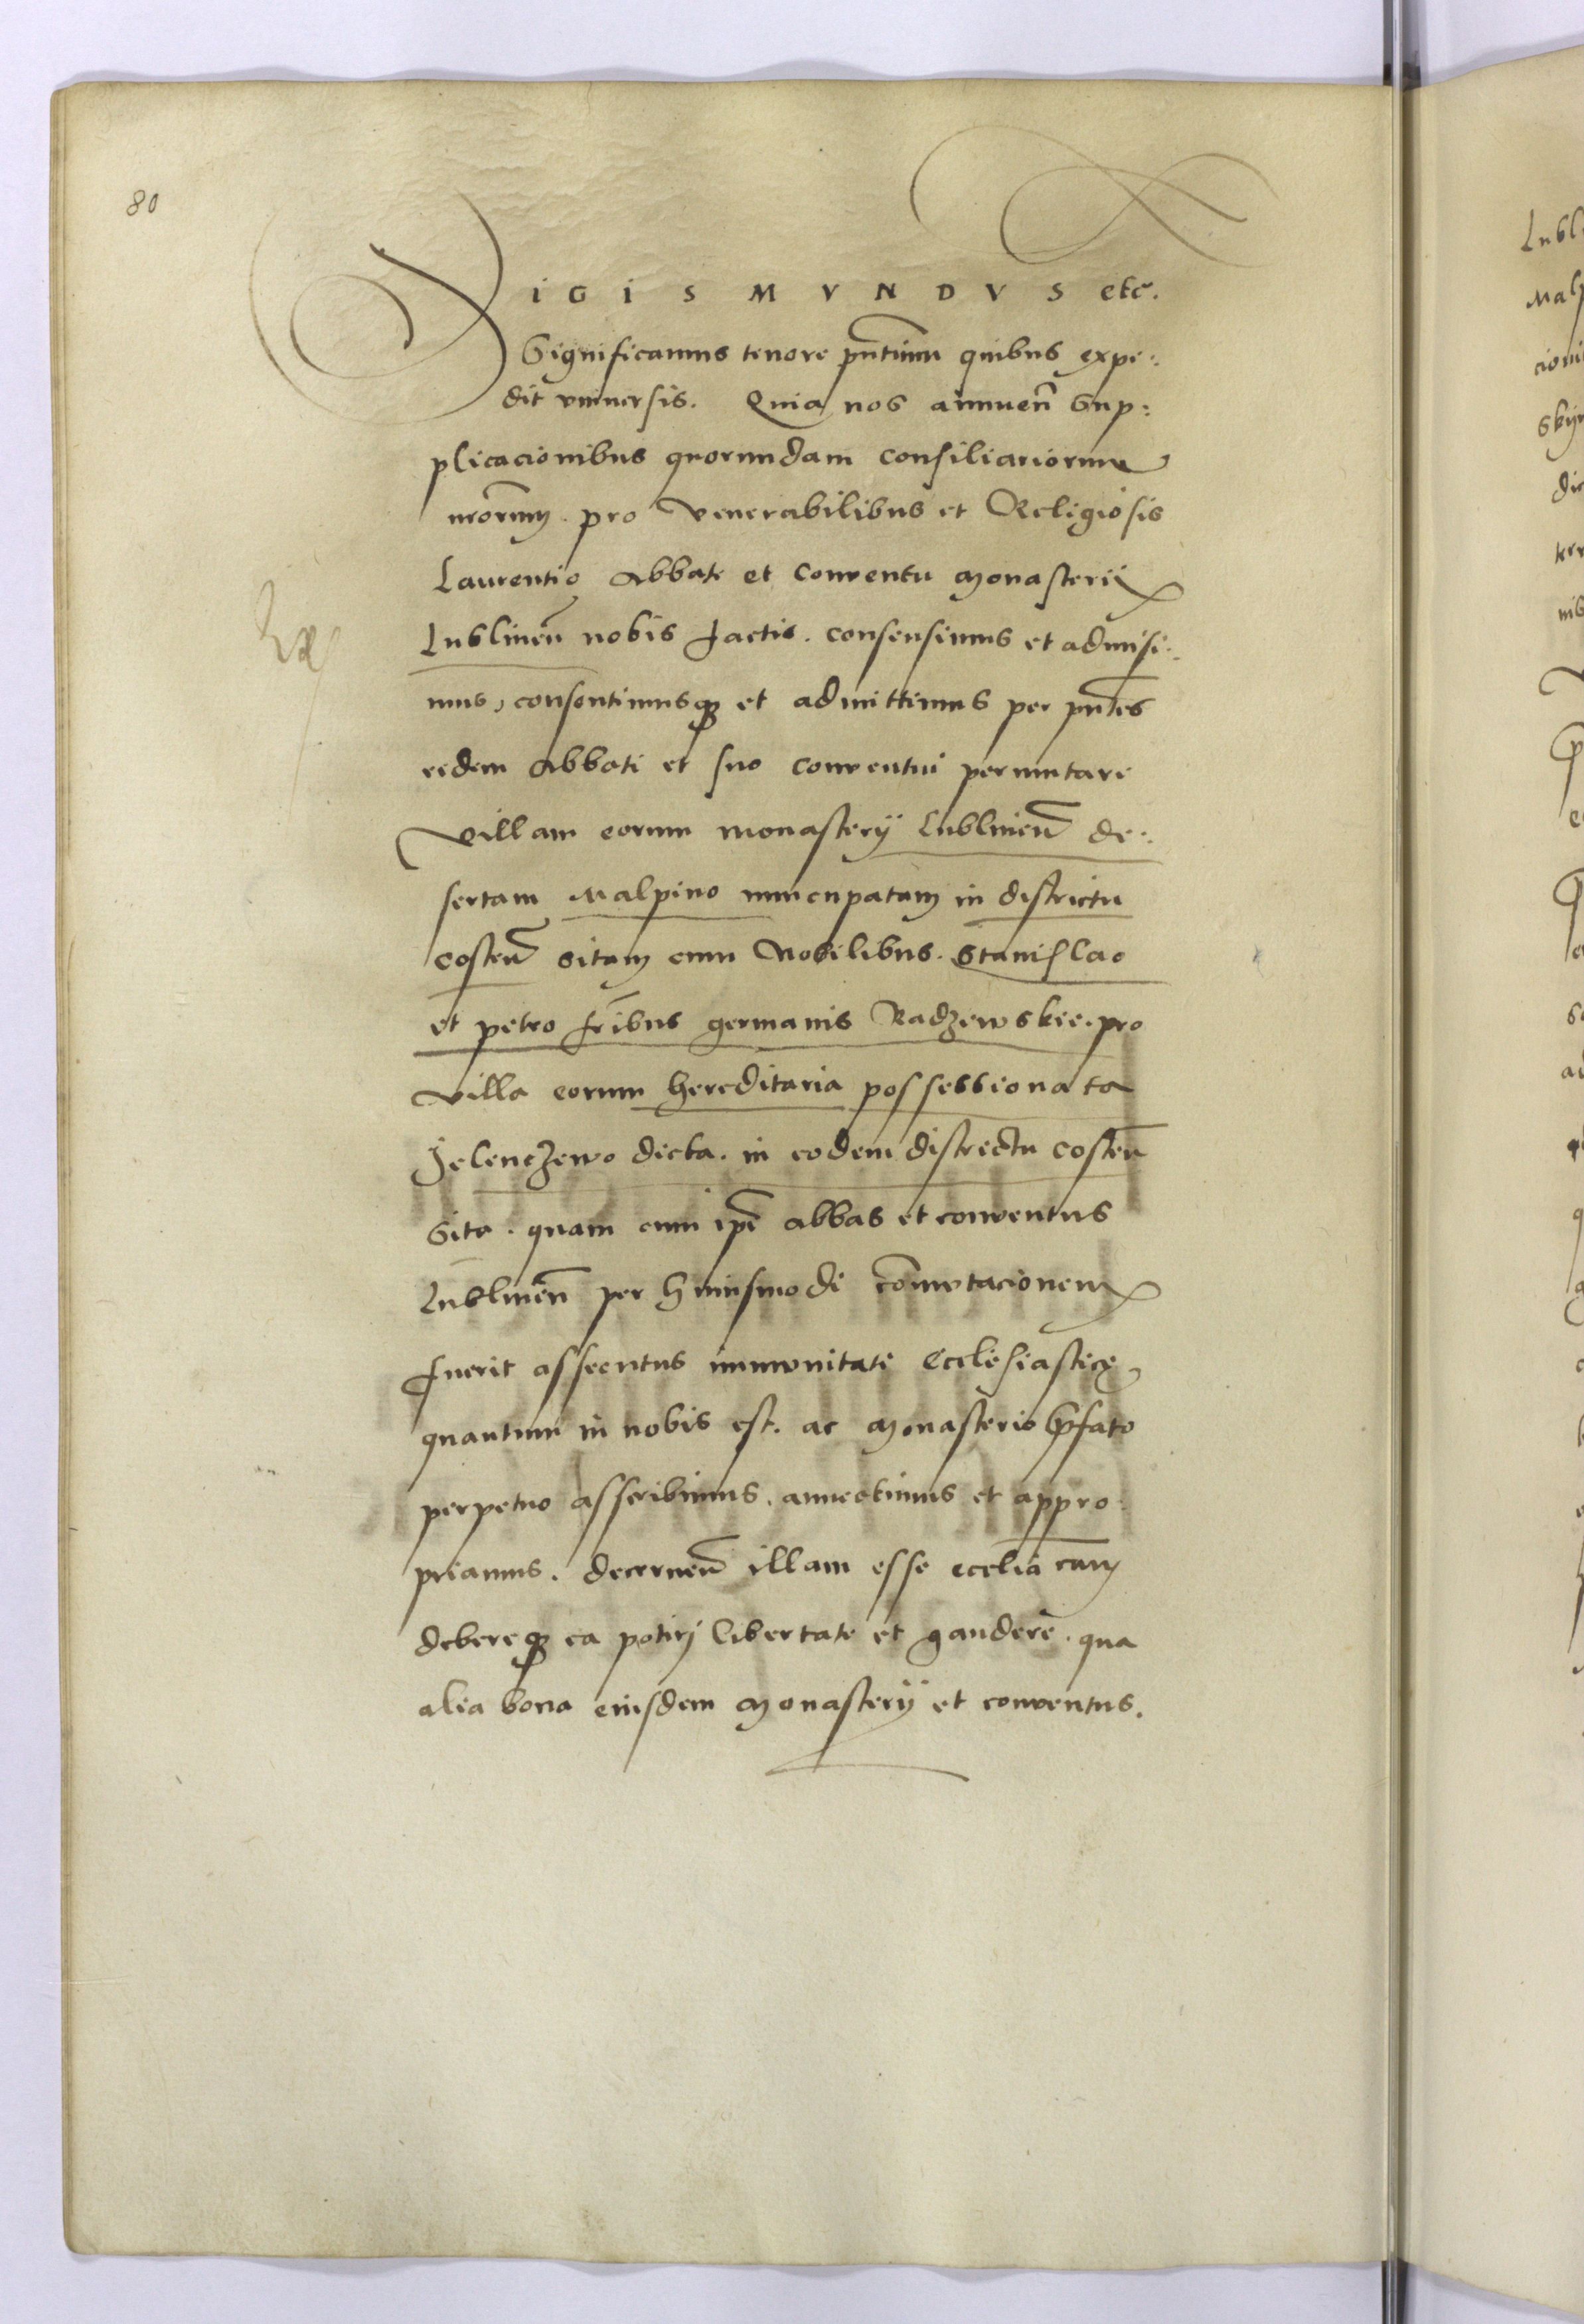 80
SIGISMVNDVS etc.
Significamus tenore pñtium quibus expe:
dit vniuersis. Quia nos annuen̄ Sup:
plicacionibus quorundam consiliariorum
nrōrum. pro Venerabilibus et Religiosis
Laurentio Abbate et Conventu Monasterii
Lublinen̄ nobis factis. consensimus et admisi:
mus, consentimusq3 et admittimus per pn̄tes
eidem Abbati et suo conventui permutare
villam eorum monasterÿ Lublinen̄ de:
sertam Malpino nuncupatam in districtu
costen̄ sitam cum Nobilibus. Stanislao
et petro fr̄ibus germanis Radzewskie. pro
villa eorum hereditaria possessionata
Jelenczewo dicta. in eodem districtu costen̄
Sita. quam cum ip̄e abbas et conventus
Lublinen̄ per Huiusmodi com̄utacionem
fuerit assecutus immunitati Ecclesiasticę
quantum in nobis est. ac Monasterio p̄fato
perpetuo asscribimus. annectimus et appro
priamus. decernen̄ illam esse eccl̄iācam
debereq3 ea potirj libertate et gaudere. qua
alia bona eiusdem Monasterÿ et conventus.